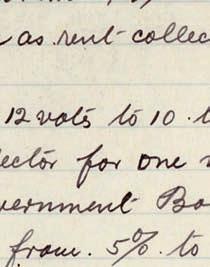 as rent collec
12 votes to 10. t
lector for one
vernment Bo
from. 5%. to